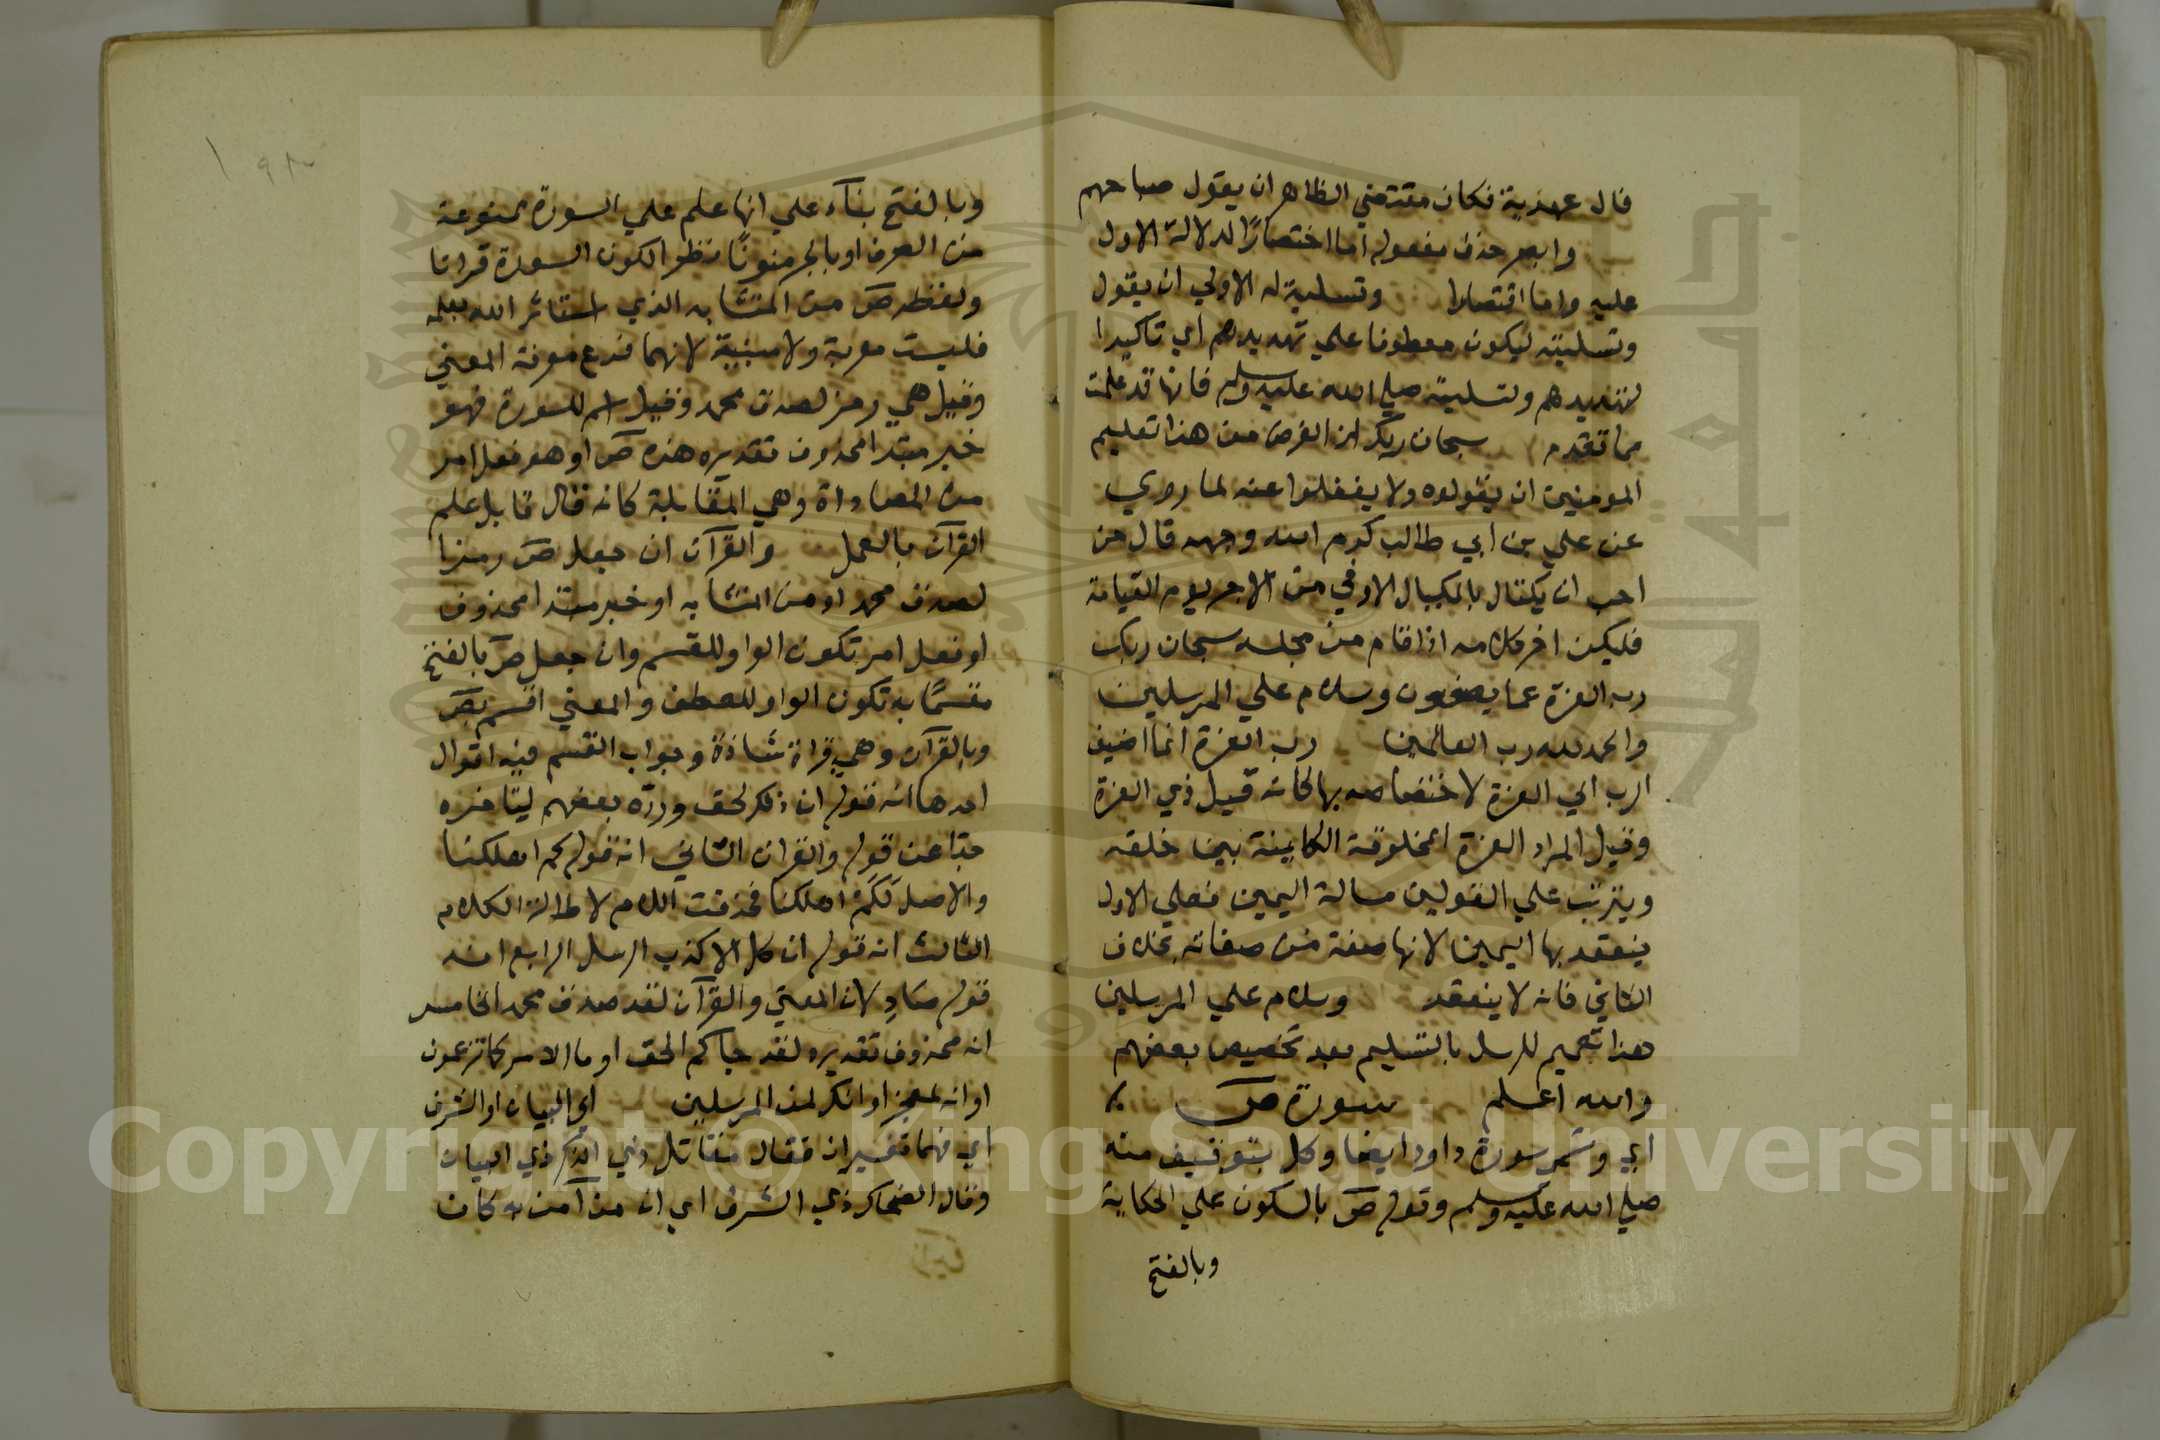 قال عهدية فكان مقتضي الظاهر ان يقول صباحهم
وابصر حذف مفعوله اما اختصارا لدلالة الاول
عليه واما اقتصارا وتسلية له الاولي ان يقول
وتسليته ليكون معطوفا علي تهديدهم اي تاكيدا
لتهديدهم وتسليته صلي الله عليه وسلم فانها قد علمت
مما تقدم سبحان ربك الخ الغرض من هذا تعليم
المومنين ان يقولوه ولا يغفلوا عنه لما روي
عن علي بن ابي طالب كرم الله وجهه قال من
احب ان يكتال بالمكيال الاوفي من الاجر يوم القيامة
فليكن اخر كلامه اذا قام من مجلسه سبحان ربك
رب العزة عما يصفون وسلام علي المرسلين
والحمد لله رب العالمين رب العزة انما اضيف
الرب الي العزة لاختصاصه بها كانه قيل ذي العزة
وقيل المراد العزة المخلوقة الكاينة بين خلقه
ويترتب علي القولين مسالة اليمين فعلي الاول
ينعقد بها اليمين لانها صفة من صفاته بخلاف
الثاني فانه لا ينعقد وسلام علي المرسلين
هذا تعميم للرسل بالتسليم بعد تخصيص بعضهم
والله اعلم سورة ص
اي وتسمي سورة داود ايضا وكل بتوقيف منه
صلي الله عليه وسلم وقوله ص بالسكون علي الحكاية
وبالفتح
وبالفتح بناء علي انها علم علي السورة ممنوعة
من الصرف او بالجر منونا نظرا لكون السورة قرانا
ولفظ ص من المتشابه الذي استاثر الله بعلمه
فليست معربة ولا مبنية لانهما فرع معرفة المعني
وقيل هي رمز لصدق محمد وقيل اسم للسورة فهو
خبر مبتدا محذوف تقديره هذه ص او هو فعل امر
من المصاداة وهي المقابلة كانه قال قابل علم
القرآن بالعمل والقرآن ان جعل ص رمزا
لصدق محمد او من المتشابه او خبر مبتدا محذوف
او فعل امر تكون الواو للقسم وان جعل ص بالفتح
مقسما به تكون الواو للعطف والمعني اقسم بص
وبالقرآن وهي قراة شاذة وجواب القسم فيه اقوال
احدها انه قوله ان ذلك لحق ورده بعضهم لتاخره
جدا عن قوله والقران الثاني انه قوله كم اهلكنا
والاصل لكم اهلكنا فحذفت اللام لاطالة الكلام
الثالث انه قوله ان كل الا كذب الرسل الرابع انه
قوله صاد لان المعني والقرآن لقد صدق محمد الخامس
انه محذوف تقديره لقد جاكم الحق او ما الامر كما تزعمون
او انه لمعجز او انك لمن المرسلين اي البيان او الشرف
اي فهما تفسيران فقال مقاتل ذي الذكر ذي البيان
وقال الضحاك ذي الشرف اي ان من آمن به كان
Copyright © King Saud University